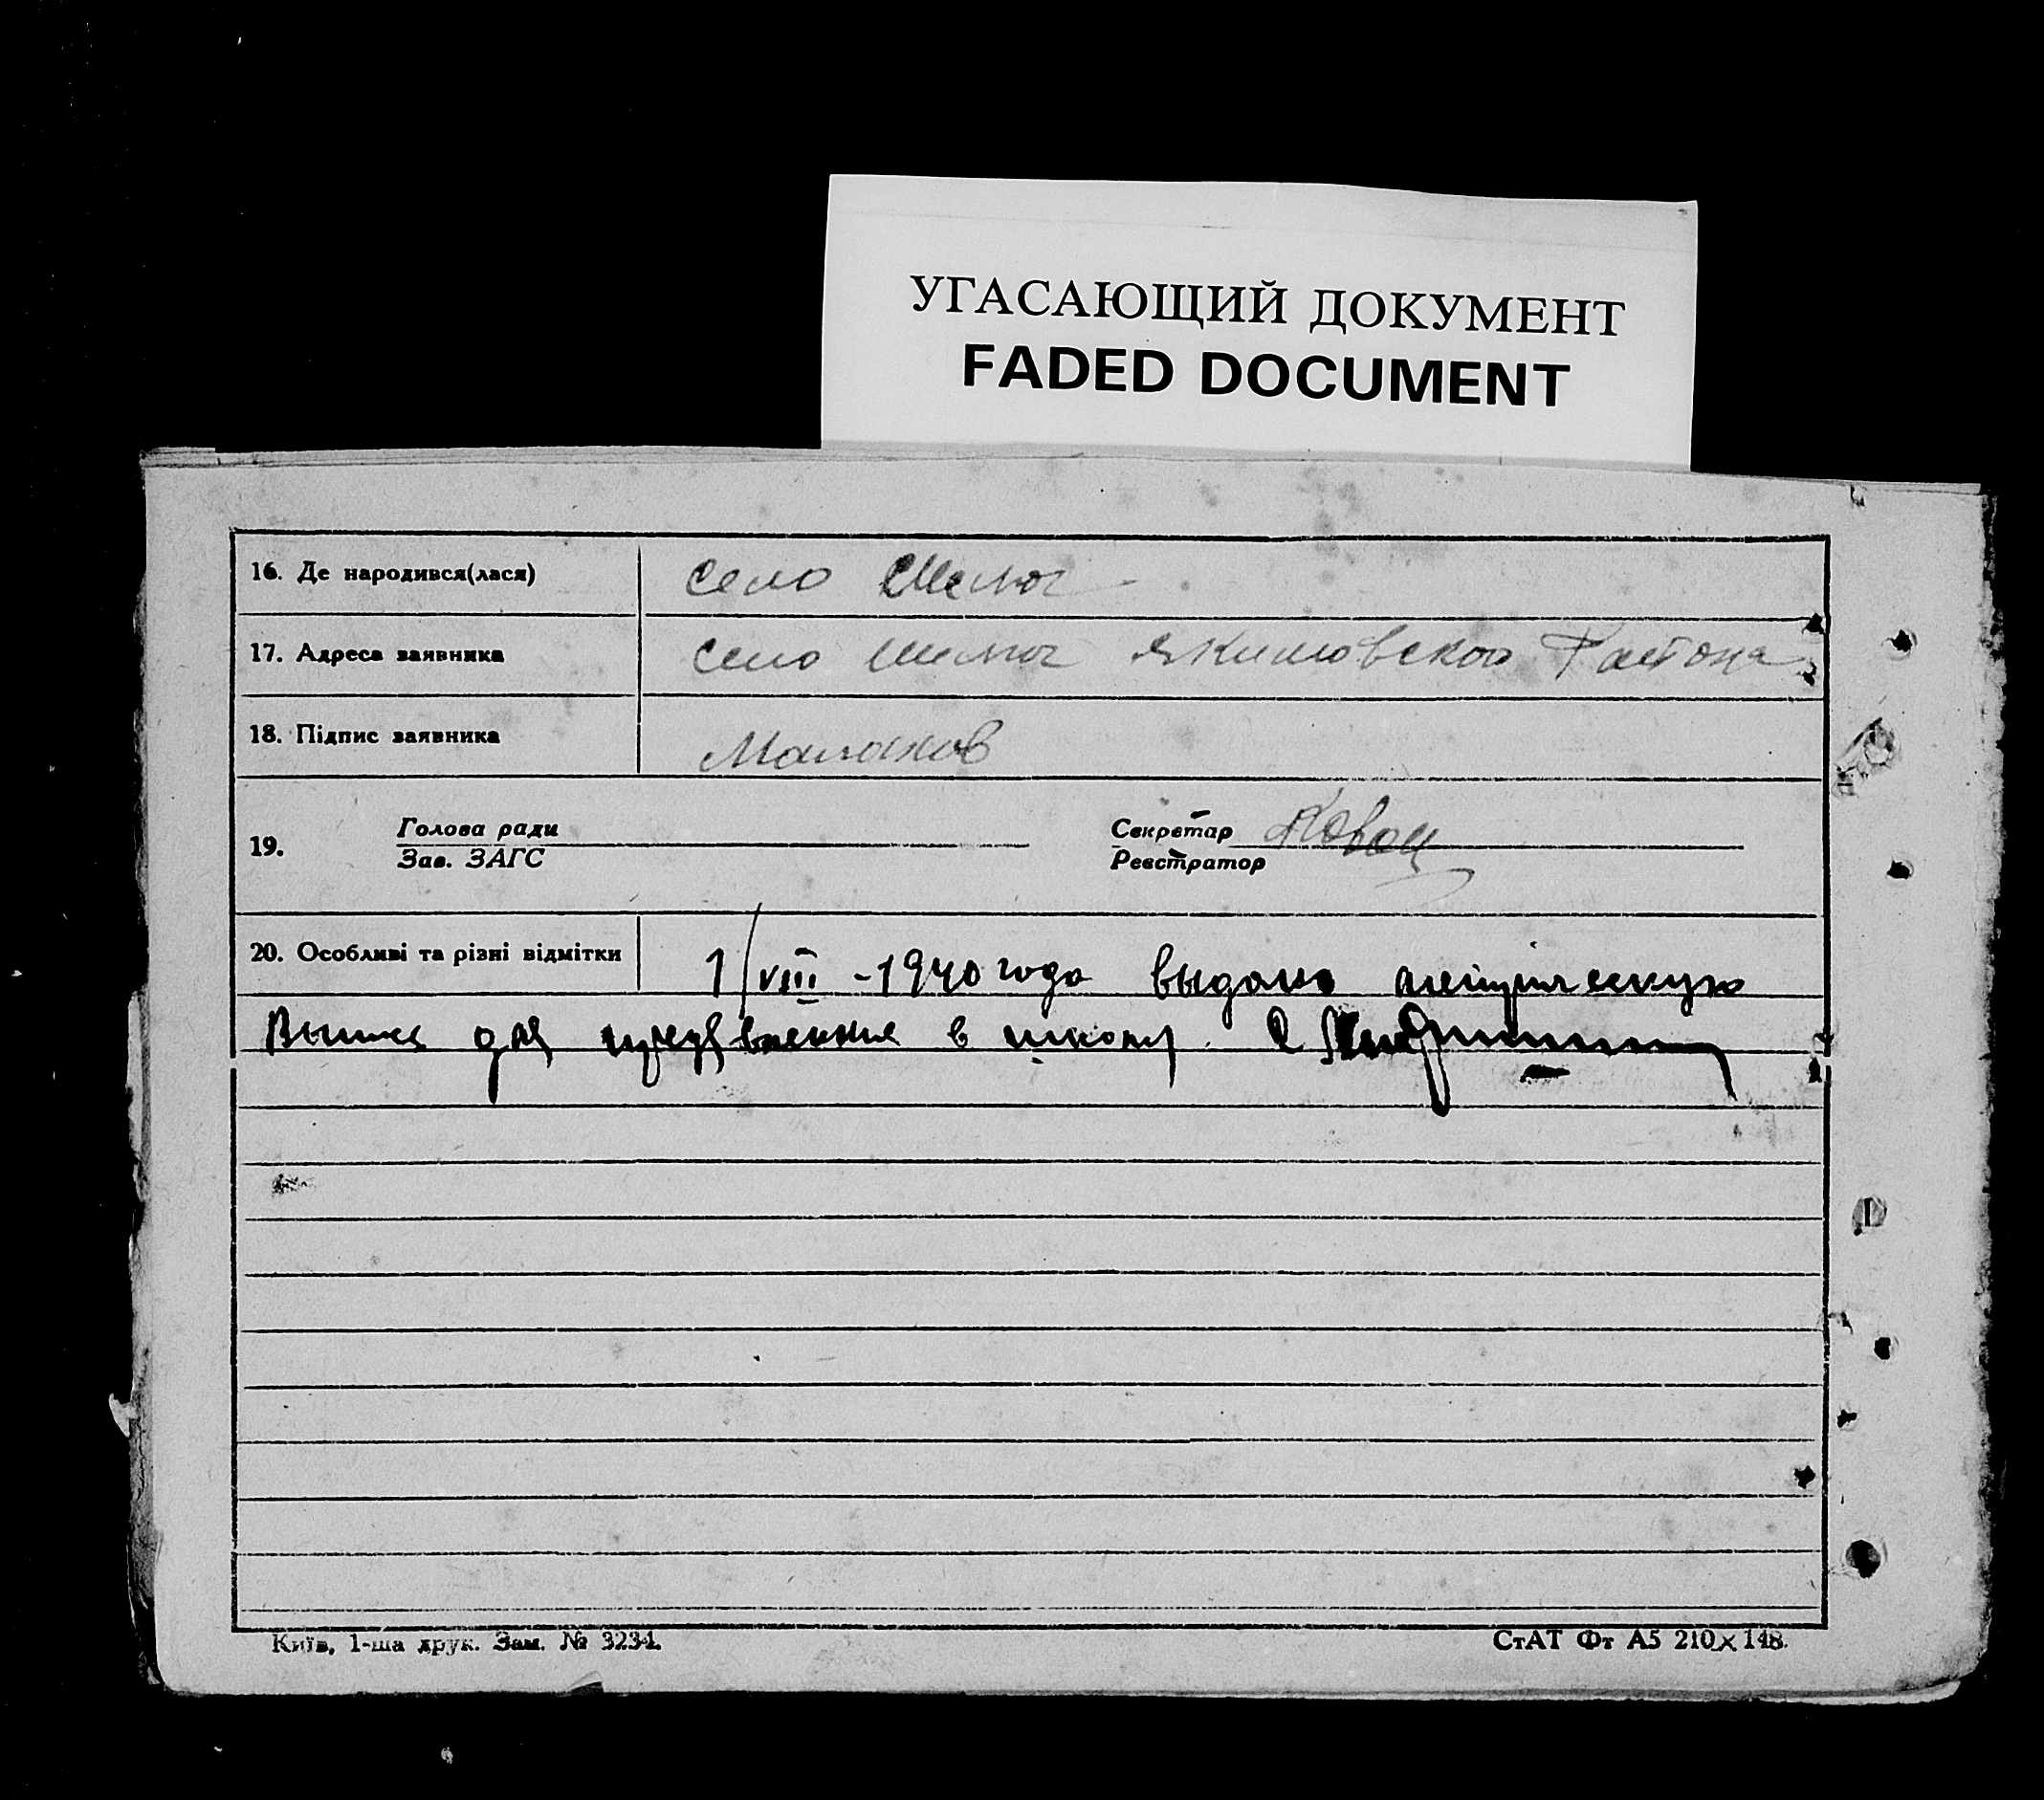 УГАСАЮЩИЙ ДОКУМЕНТ
FADED DOCUMENT
16. Де народився(лася) село Шелюг
17. Адреса заявника село Шелюг Якимовского Района
18. Підпис заявника
19. Голова ради Секретар
Зав. ЗАГС Реєстратор
20. Особливі та різні відмітки 1/VIII - 1940 года выдано
для в школу
Київ, 1-ша друк. Зам. № 3234. СтАТ Фт А5 210×148.